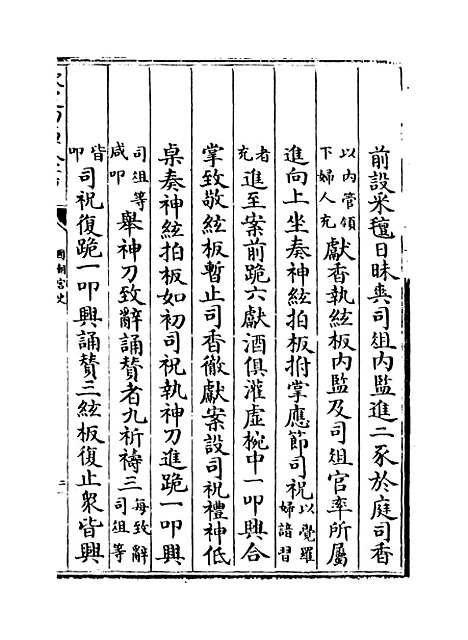 前設采氊日昧爽司俎內監進二豕於庭司香
以内管領
下婦人充
獻香執絃板内監及司俎官率所屬
進向上坐奏神絃拍板拊掌應節司祝
以覺羅
婦諳習
者
充
進至案前跪六獻酒俱灌虛椀中一叩興合
掌致敬絃板暫止司香徹獻案設司祝禮神低
桌奏神絃拍板如初司祝執神刀進跪一叩興
司俎等
咸叩
舉神刀致辭誦贊者九祈禱三
每致辭
司俎等
皆
叩
司祝復跪一叩興誦贊三絃板復止衆皆興
國朝宫史